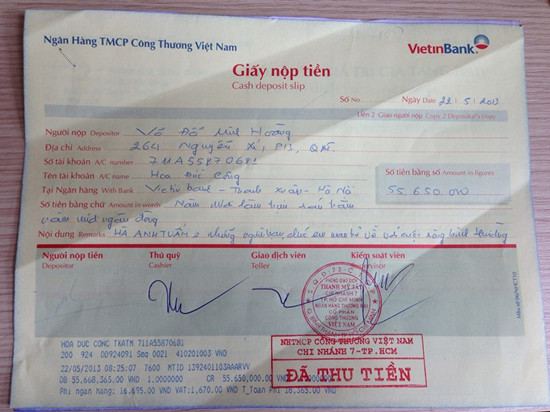 Ngân Hàng TMCP Công Thương Việt Nam
VietinBank
Giấy nộp tiền
Cash deposit slip
Số No Ngày Date 22/5/2013
Liên 2 Giao người nộp Copy 2 Depositor's copy
Người nộp Depositor Võ Đỗ Minh Hoàng
Địa chỉ Address 264 Nguyễn Xí, P13,
Số tài khoản A/C number 711A55870681
Tên tài khoản A/C name Hoa Đức Công
Tại Ngân hàng With Bank Vietinbank - Thanh Xuân - Hà Nội
Số tiền bằng số Amount in figures
55.650.000
Số tiền bằng chữ Amount in words Năm mươi lăm triệu sáu trăm
năm mươi ngàn đồng
Nội dung Remarks HÀ ANH TUẤN & những người bạn,
Người nộp tiền Thủ quỹ Giao dịch viên Kiểm soát viên
Depositor Cashier Teller Supervisor
PHÒNG GIAO DỊCH
CHI NHÁNH 7
TP. HỒ CHÍ MINH
NGÂN HÀNG THƯƠNG MẠI
CỔ PHẦN
CÔNG THƯƠNG
VIỆT NAM
NHTMCP CÔNG THƯƠNG VIỆT NAM
CHI NHÁNH 7-TP.HCM
ĐÃ THU TIỀN
HOA DUC CONG TKATM 711A55870681
200 924 DD924091 Seq 0021 410201003 VND
22/05/2013 08:25:07 7600 MTID 1392401103AAARVV
DB 55,668,365.00 1.0000000 CR 55,650,000.00 VND
Phi ngan hang: 16,695.00 VAT:1,670.00 T_Toan Phi 18,365.00 VND